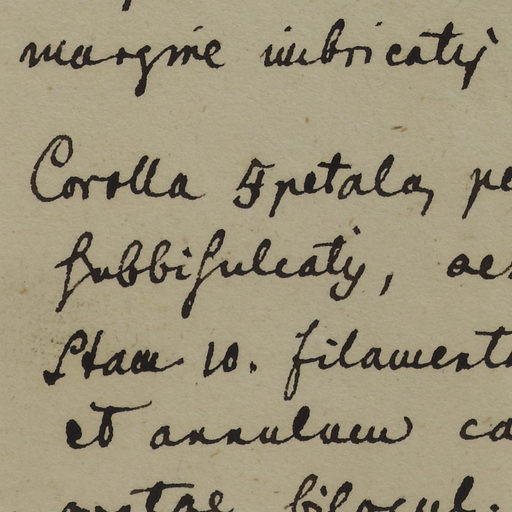 margine imbricatis
Corolla 5petala, pe
subbisulcatis, ae
Stam 10. filament
et annulum ca
bilocul.